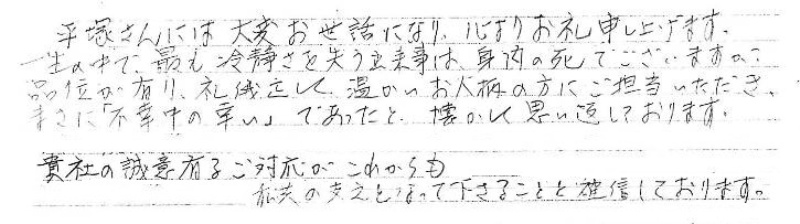 平塚さんには大変お世話になり、心よりお礼申し上げます。
一生の中で、最も冷静さを失う出来事は、身内の死でございますが、
品位が有り、礼儀正しく、温かいお人柄の方にご担当いただき、
まさに「不幸中の幸い」であったと、懐かしく思い返しております。
貴社の誠意有るご対応がこれからも
の支えとなって下さることと確信しております。